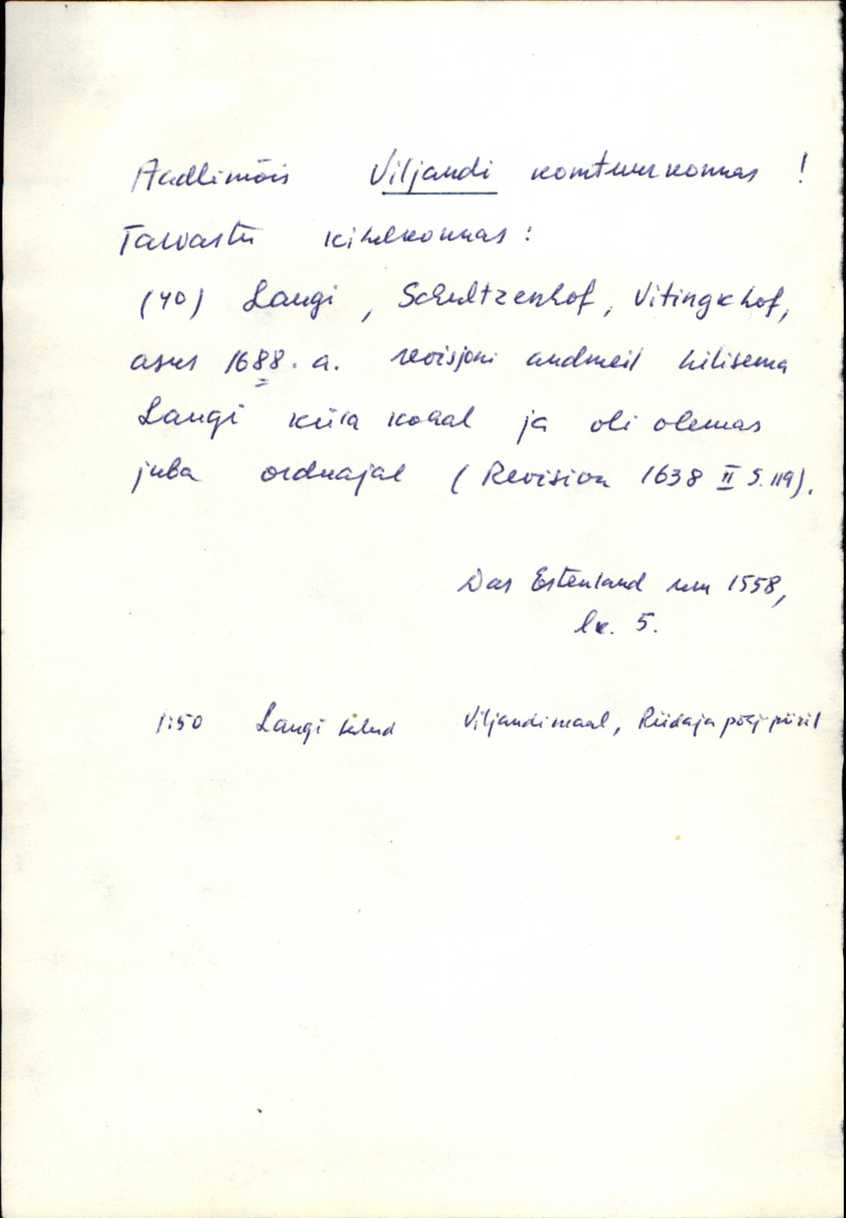 Aadlimõis Viljandi komtuurkonnas !
Tarvastu kihelkonnas :
(40) Langi, Schultzenhof, Vitingkhof,
asus 1688. a. revisjoni andmeil hilisema
Langi küla kohal ja oli olemas
juba orduajal (Revision 1638 II S. 119).
Das Estenland um 1558,
lk. 5.
1:50 Langi talud Viljandimaal, Riidaja põhj-piiril